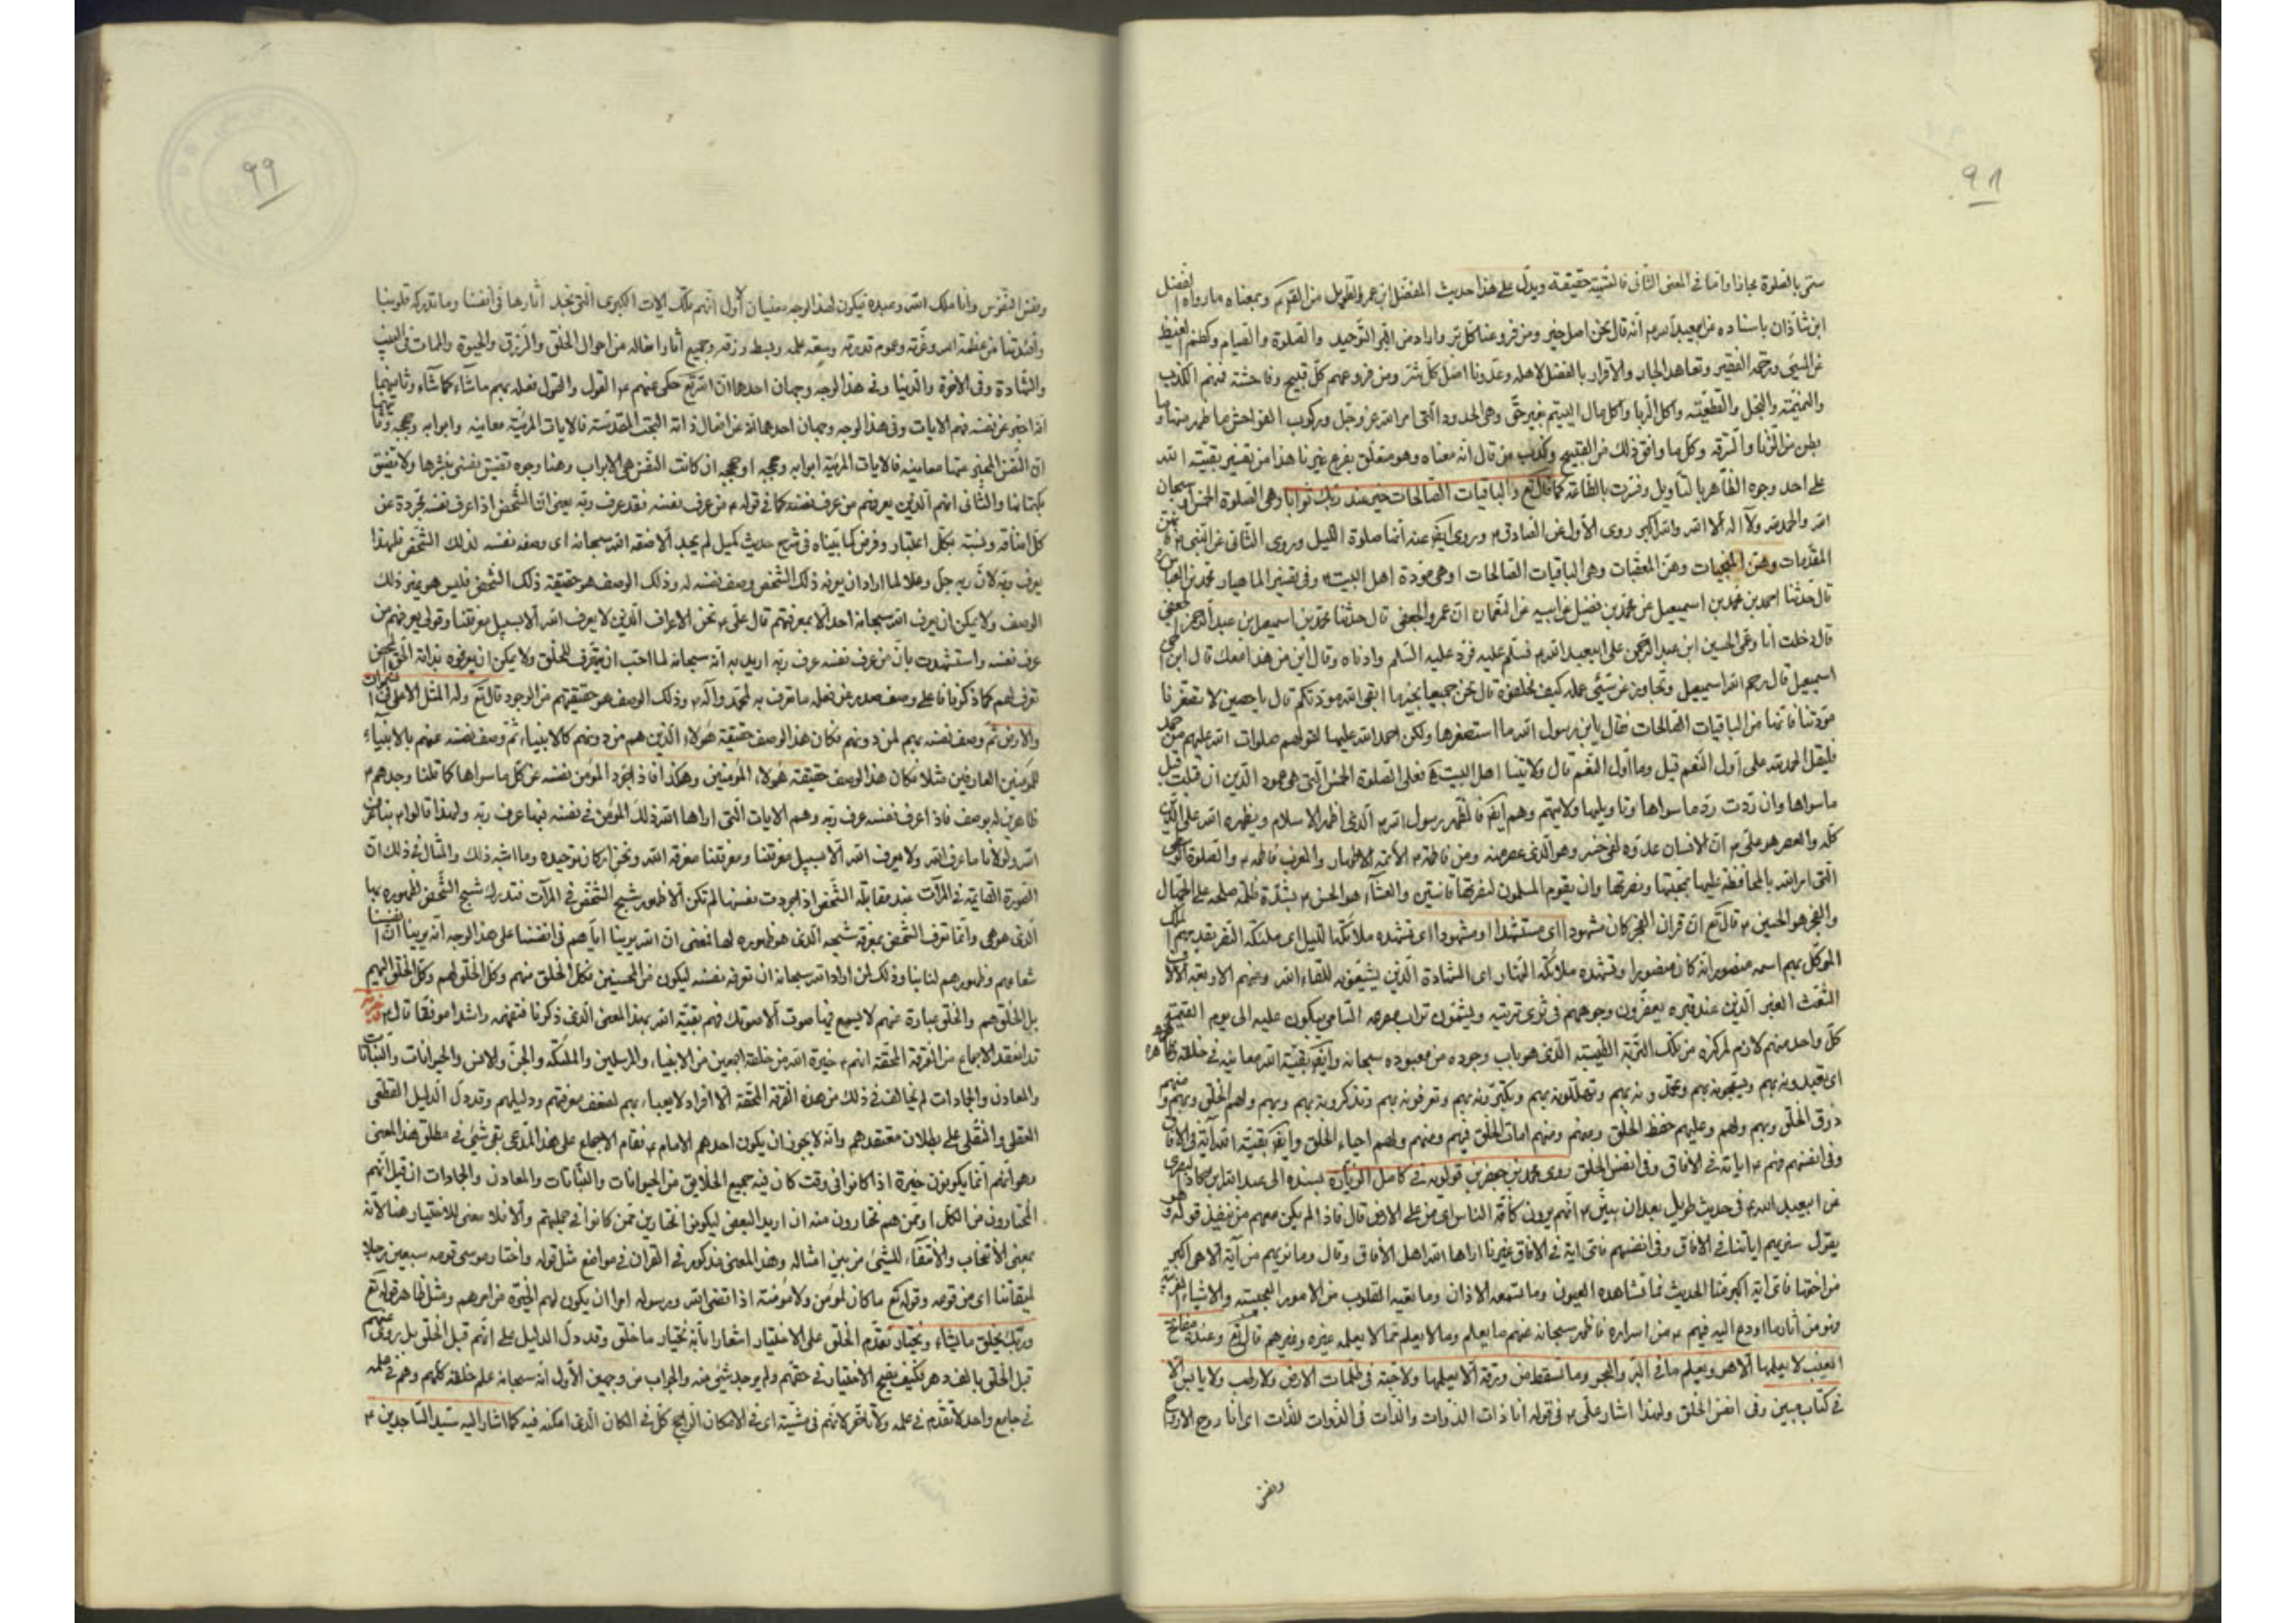 ٩٨
سمّى بالصلوة مجازا وامّا في المعنى الثاني فالتسمية حقيقة ويدلّ على هذا حديث المفضل ابن عمر والطويل من القوم وبمعناه ما رواه الفضل
ابن شاذان باسناده عن ابيعبدالله ٤ انه قال نحن اصل خير ومن فروعنا كل بر واراد من البر التوحيد والصلوة والصيام وكظم الغيظ
عن المسيئ ورحمة الفقير وتعاهد الجار والاقرار بالفضل لاهله وعدونا اصل كل شر ومن فروعهم كل قبيح وفاحشة فمنهم الكذب
والنميمة والبخل والقطيعة واكل الربا واكل مال اليتيم بغير حق وهى الحدود التى امر الله عز وجل وركوب الفواحش ما ظهر منها وما
بطن من الزنا والسرقة وكل ما وافق ذلك من القبيح وكذب من قال انه معنا وهو متعلق بفرع غيرنا هذا من تفسير بقية الله
على احد وجوه الظاهر بالتأويل وفسّرت بالطاعة كما قال تع والباقيات الصالحات خير عند ربك ثوابا وهى الصلوة الخمس او سبحان
الله والحمد لله ولا اله الا الله والله اكبر روى الاول عن الصادق ٤ وروى ايضا عنه انها صلوة الليل وروى الثانى عن النبى ص هن
المقدمات وهن المنجيات وهن المعقبات وهى الباقيات الصالحات او هى مودة اهل البيت ٤ وفى تفسير الماهيار محمد بن العباس
قال حدثنا احمد بن محمد بن اسمعيل عن محمد بن فضيل عن ابيه عن النعمان ان عمرو الجعفى قال حدثنا محمد بن اسمعيل بن عبد الرحمن الجعفى
قال دخلت انا وعمى الحسين ابن عبد الرحمن على ابيعبد الله ٤ فسلم عليه فرد عليه السلم وادناه وقال ابن من هذا معك قال ابن اخى
اسمعيل قال رحم الله اسمعيل وتجاوز عن سيئ عمله كيف مخلفوه قال نحن جميعا بخير ما ابقى الله مودتكم قال يا حصين لا تستصغرنا
مودتنا فانها من الباقيات الصالحات فقال يابن رسول الله ما استصغرها ولكن احمد الله عليها لقولهم صلوات الله عليهم من حمد
فليقل الحمد لله على اول النعم قيل وما اول النعم قال ولايتنا اهل البيت فعلى الصلوة الخمس التى هى عمود الدين ان قبلت قبل
ما سواها وان ردت رد ما سواها وتأويلها ولايتهم وهم ايضا فالظهر رسول الله ص الذى اظهر الاسلام ويظهره الله على الدين
كله والعصر هو على ٤ ان الانسان عدوه لفى خسر وهو الذى عصر منه ومن فاطمة ٤ الائمة الاطهار والمغرب فاطمة ٤ والصلوة الوسطى
التى امر الله بالمحافظة عليها بمحبتها ونصرتها وان يقوم المسلمون لنصرتها قانتين والعشاء هو الحسن ٤ بشدة ظلمة صلحه على الجهال
والفجر هو الحسين ٤ قال تع ان قران الفجر كان مشهودا اى مستشهدا او مشهودا اى تشهده ملائكة الليل اى ملئكة النصر يقديهم الملك
الموكل بهم اسمه منصور انه كان منصورا وتشهده ملائكة النهار اى الشهادة الذين يشيعونه للقاء الله ومنهم الاربعة الالاف
الشعث الغبر الذين عند قبره يعفرون وجوههم فى ثرى تربته ويشمون تراب مصرعه السامى يبكون عليه الى يوم القيمة
كل واحد منهم لازم لمركزه من تلك التربة الطيبة الذى هو باب وجوده من معبوده سبحانه وايضا بقية الله معانيه فى خلقه وظاهره
اى يعبدونه بهم ويسبحونه بهم ويحمدونه بهم ويهللونه بهم ويكبرونه بهم وتعرفونه بهم وتذكرونه بهم وبهم ولهم الخلق وبهم ومنهم
رزق الخلق وبهم ولهم وعليهم حفظ الخلق ومنهم ومنهم امات الخلق فيهم ومنهم ولهم احياء الخلق وايضا بقية الله آية فى الافاق
وفى انفسهم فهم ٤ اياته فى الافاق وفى انفس الخلق روى محمد بن جعفر بن قولويه فى كامل الزيارة بسنده الى عبد الله ابن بكار
عن ابيعبد الله ٤ فى حديث طويل بعد ان بيّن ٤ انهم يرون كافة الناس اى من على الارض قال فاذا لم يكن معهم من ينفذ قوله وهو
يقول سنريهم اياتنا فى الافاق وفى انفسهم فاىّ اية فى الافاق غيرنا اراها الله اهل الافاق وقال وما نريهم من آية الا هى اكبر
من اختها فاىّ اية اكبر منا الحديث فما تشاهده العيون وما تسمعه الاذان وما تعيه القلوب من الامور العجيبة والاشياء الغريبة
وتو من آثار ما اودع اليه فيهم ٤ من اسراره فاظهر سبحانه عنهم ما يعلم وما لا يعلم مما لا يعلمه غيره وغيرهم قال تع وعنده مفاتح
الغيب لا يعلمها الا هو ويعلم ما فى البر والبحر وما تسقط من ورقة الا يعلمها ولا حبة فى ظلمات الارض ولا رطب ولا يابس الا
فى كتاب مبين وفى انفس الخلق ولهذا اشار على ٤ فى قوله انا ذات الذوات والذات فى الذوات للذات اى انا روح الارواح
ونفس
٩٩
ونفس النفوس وانا ملك الله وعبده فيكون لهذا الوجه معنيان الاول انهم تلك الايات الكبرى التى نجد آثارها فى انفسنا وما تدركه قلوبنا
وافئدتنا من عظمة الله وعزته وعموم قدرته وسعة علمه وبسط رزقه وجميع آثار افعاله من احوال الخلق والرزق والحيوة والممات فى الغيب
والشهادة وفى الاخرة والدنيا وفى هذا الوجه وجهان احدهما ان الله تع حكى عنهم ٤ القول والقول فعله بهم ما شاء كما شاء وثانيهما
انه اخبر عن نفسه فهم الايات وفى هذا الوجه وجهان احدهما انه عن افعال ذاته البحت المقدسة فالايات المرئية معانيه وابوابه وحججه وثانيهما
ان النفس المخبر عنها معانيه فالايات المرئية ابوابه وحججه او حججه ان كانت النفس هى الابواب وهنا وجوه تضيق نفسى بنشرها ولا تضيق
بكتمانها والثانى انهم الذين يعرفهم من عرف نفسه كما فى قوله ٤ من عرف نفسه فقد عرف ربه يعنى ان الشخص اذا عرف نفسه مجردة عن
كل اضافة ونسبة بكل اعتبار وفرض كما بيناه فى شرح حديث كميل لم يجد الا صفة الله سبحانه اى وصف نفسه لذلك الشخص فلهذا
يعرف ربه لان ربه جل وعلا لما اراد ان يعرفه ذلك الشخص وصف نفسه له وذلك الوصف هو حقيقة ذلك الشخص فليس هو بغير ذلك
الوصف ولا يمكن ان يعرف الله سبحانه احد الا بمعرفتهم قال على ٤ نحن الاعراف الذين لا يعرف الله الا بسبيل معرفتنا وقولى يعرفهم من
عرف نفسه واستشهدت بان من عرف نفسه عرف ربه اريد به انه سبحانه لما احب ان يتعرف للخلق ولا يمكن ان يعرفوه بذاته الحق المحض
تعرف لهم كما ذكرنا على وصف صدر عن فعله ما تعرف به لمحمد وآله ٤ وذلك الوصف هو حقيقتهم من الوجود قال تع وله المثل الاعلى فى السموات
والارض ثم وصف نفسه بهم لمن دونهم فكان هذا الوصف حقيقة هؤلاء الذين هم من دونهم كالانبياء ثم وصف نفسه عنهم بالانبياء
للمؤمنين العارفين مثلا فكان هذا الوصف حقيقة هؤلاء المؤمنين وهكذا فاذا جرد المؤمن نفسه عن كل ما سواها كما قلنا وجدهم ٤
ظاهرين له بوصف فاذا عرف نفسه عرف ربه وهم الايات التى اراها الله ذلك المؤمن فى نفسه فبها عرف ربه ولهذا قالوا ٤ بنا عرف
الله ولولانا ما عرف الله ولا يعرف الله الا بسبيل معرفتنا ومعرفتنا معرفة الله ونحن اركان توحيده وما اشبه ذلك والمثال فى ذلك ان
الصورة القائمة فى المرآت عند مقابلة الشخص اذا جردت نفسها لم تكن الا ظهور شبح الشخص فى المرآت فتدرك شبح الشخص لظهوره بها
الذى هو هى وانما تعرف الشخص بمعرفة شبحه الذى هو ظهوره لها فمعنى ان الله يرينا اياهم فى انفسنا على هذا الوجه انه يرينا ان انفسنا
شعاعهم وظهورهم لنا بنا وذلك لمن اراد الله سبحانه ان تعرفه نفسه ليكون من المحسنين فكل الخلق منهم وكل الخلق لهم وكل الخلق اليهم
بل الخلق هم والخلق عبارة عنهم لا تسمع فيها صوت الا صوتك فهم بقية الله بهذا المعنى الذى ذكرنا فتفهمه راشدا موفقا قال ٤ وخيرته
قد انعقد الاجماع من الفرقة المحقة انهم ٤ خيرة الله من خلقه اجمعين من الانبياء والمرسلين والملئكة والجن والانس والحيوانات والنباتات
والمعادن والجمادات لم يخالف فى ذلك من هذه الفرقة المحقة الا افراد لا يعبأ بهم لضعف معرفتهم ودليلهم وقد دل الدليل القطعى
العقلى والنقلى على بطلان معتقدهم وانه لا يجوز ان يكون احدهم الامام ٤ فقام الاجماع على هذا المدعى بقى شئ فى مطلق هذا المعنى
وهو انهم انما يكونون خيرة اذا كانوا فى وقت كان فيه جميع الخلايق من الحيوانات والنباتات والمعادن والجمادات ان قيل انهم
المختارون من الكل او ممن هم مختارون منه ان اريد البعض ليكونوا مختارين ممن كانوا فى جملتهم والا فلا معنى للاختيار هنا لانه
بمعنى الانتخاب والانتقاء للشئ من بين امثاله وهذا المعنى مذكور فى القران فى مواضع مثل قوله واختار موسى قومه سبعين رجلا
لميقاتنا اى من قومه وقوله تع ما كان لمؤمن ولا مؤمنة اذا قضى الله ورسوله امرا ان يكون لهم الخيرة من امرهم ومثل ظاهر قوله تع
وربك يخلق ما يشاء ويختار تقدم الخلق على الاختيار اشعارا بانه يختار ما خلق وقد دل الدليل على انهم قبل الخلق بل روى عنهم انهم
قبل الخلق بالف دهر فكيف يصح الاختيار فى حقهم ولم يوجد شئ منه والجواب من وجهين الاول انه سبحانه علم خلقه كلهم وهم فى علمه
فى جامع واحد لا تقدم فى علمه ولا تأخر لانهم فى مشيته اى فى الامكان الراجح كل فى المكان الذى امكنه فيه كما اشار اليه سيد الساجدين ٤